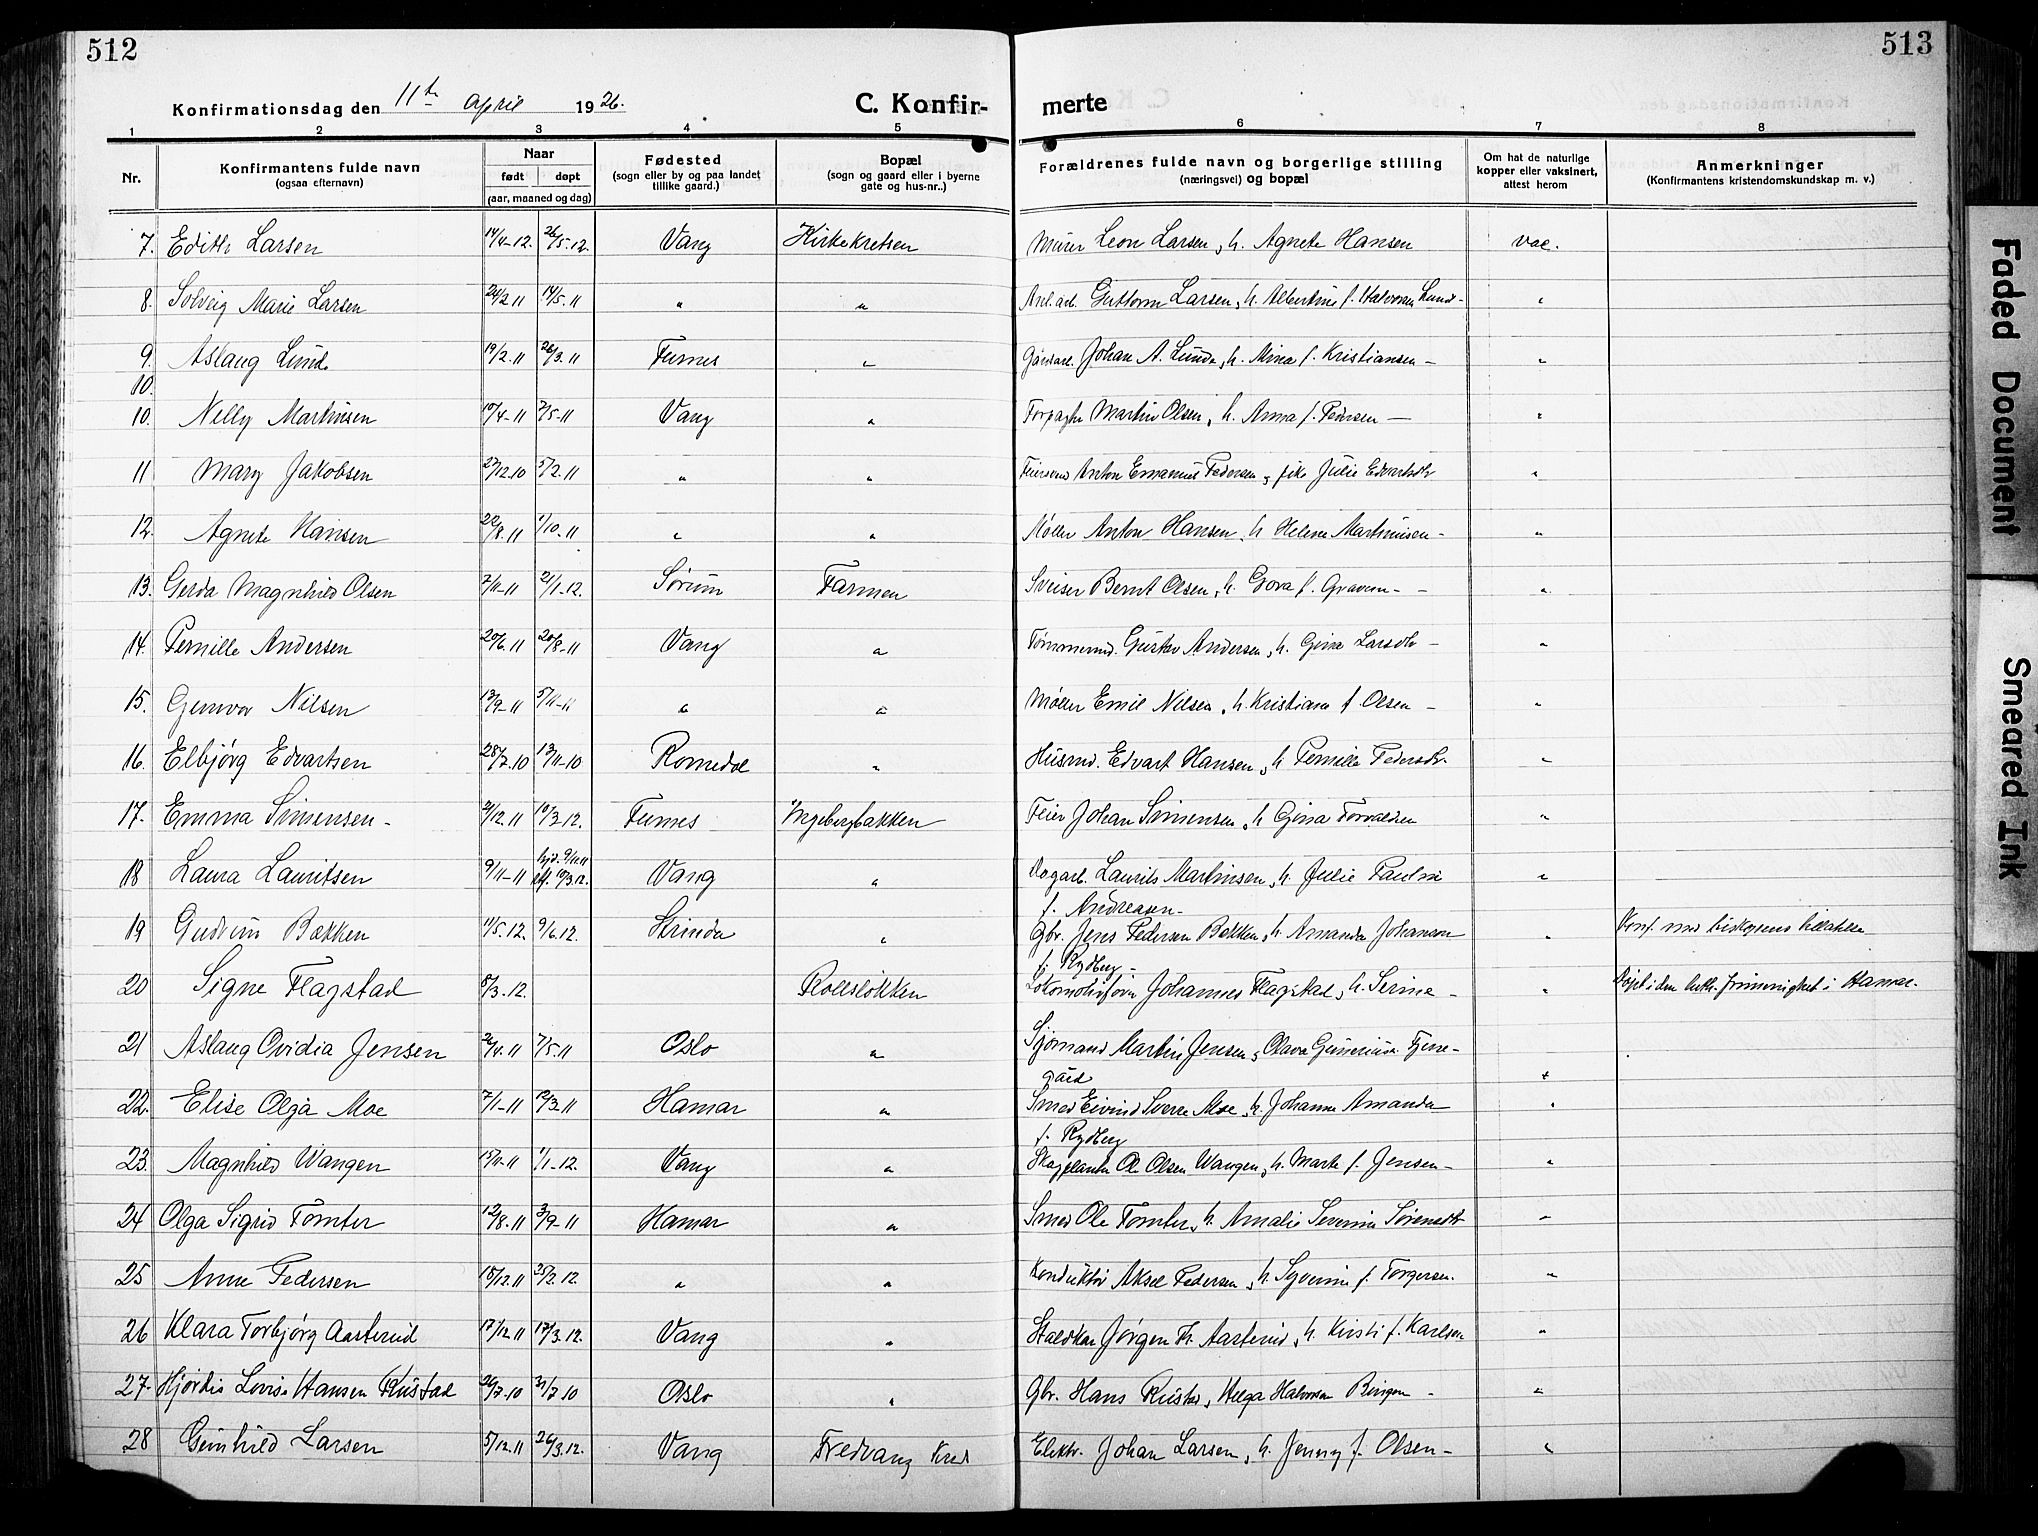 512
513
Konfirmationsdag den 11te april 1926.
C. Konfir-
merte
1 2 3 4 5 6 7 8
Nr.
Konfirmantens fulde navn
(ogsaa efternavn)
Naar
født døpt
(aar, maaned og dag)
Fødested
(sogn eller by og paa landet
tillike gaard.)
Bopæl
(sogn og gaard eller i byerne
gate og hus-nr.)
Forældrenes fulde navn og borgerlige stilling
(næringsvei) og bopæl
Om hat de naturlige
kopper eller vaksinert,
attest herom
Anmerkninger
(Konfirmantens kristendomskundskap m. v.)
7. Edith Larsen 14/4-12. 26/5-12. Vang Kirkekretsen Murer Leon Larsen, h. Agnete Hansen vac.
8. Solveig Marie Larsen 24/2 11 14/5-11 " " Guttorm Larsen, h. Albertine f. Halvorsen Lund- "
9. Aslaug Lund 19/2-11 26/3-11 Furnes " Johan A. Lund, h. Mina f. Kristiansen - "
10.
10. Nelly Martinsen 10/4-11 7/5-11 Vang " Martin Olsen, h. Anna f. Pedersen - "
11 Mary Jakobsen 27/12.10 5/2.11 " " Anton Emanuel Pedersen, pike Julie Edvartsdtr "
12. Agnete Hansen 22/8.11 1/10-11 " " Møller Anton Hansen, h Helene Martinusen - "
13. Gerda Magnhild Olsen 7/11-11 21/1-12. Sørum Farmen Sveiser Bernt Olsen, h. f. - "
14. Pernille Andersen 20/6.11 20/8-11 Vang " Tømmermd. Gustav Andersen, h. Gina Larsdtr - "
15. Gunvor Nilsen 13/9-11 5/11-11 " " Møller Emil Nilsen, h. Kristiane f. Olsen - "
16. Elbjørg Edvartsen 28/7.10 13/11-10 Romedal " Husmd. Edvart Hansen, h Pernille Pedersdtr. "
17. Emma Simensen - 4/12.11 10/3.12. Furnes Ingebergbakken Feier Johan Simensen, h Gina Torvaldsen "
hjd. 9/11.11
18 Laura Lauritsen 9/11-11 stf. 10/3.12. Vang " Laurits Martinsen, h. Julie Pauline "
f. Andreasen-
19 Gudrun Bakken 11/5.12. 9/6.12. Strinda " Gbr. Jens Pedersen Bakken, h. Amanda Johanson " Konf. med biskopens tillatelse
f. Rydberg -
20 Signe Flagstad 8/3-12. Rollsløkken Johannes Flagstad, h. Serine - " Døpt i den luth. frimenighet i Hamar.
21 Aslaug Ovidia Jensen 7/5.11 Oslo " Sjømand Martin Jensen,
gård "
22. Elise Olga Moe 7/1-11 12/3.11 Hamar " Smed Eivind Sverre Moe, h. Johanna Amanda "
f. Rydberg
23. Magnhild Wangen 15/11-11 1/1-12. Vang " Ole Olsen Wangen, h. Marte f. Jensen - "
24 Olga Sigrid Tomter 12/8.11 3/9.11 Hamar " Smed Ole Tomter, h. Amalie Severine Sørensdtr "
25 Anne Pedersen 18/12.11 25/2.12. " " Konduktør Aksel Pedersen, h. Syverine f. Torgersen. "
26 Klara Torbjørg Aasterud 17/12.11 17/3.12. Vang " Staldkar Jørgen Kr. Aasterud, h. Kirsti f. Karlsen "
27. Hjørdis Lovise Hansen Rustad 26/7.10 31/7.10 Oslo " Gbr. Hans Rustad, Helga Halvorsen Bingen - "
28 Gunhild Larsen 5/12.11 26/3.12. Vang Fredvang Elektr. Johan Larsen, h. Jenny f. Olsen - "
Faded Document
Smeared Ink